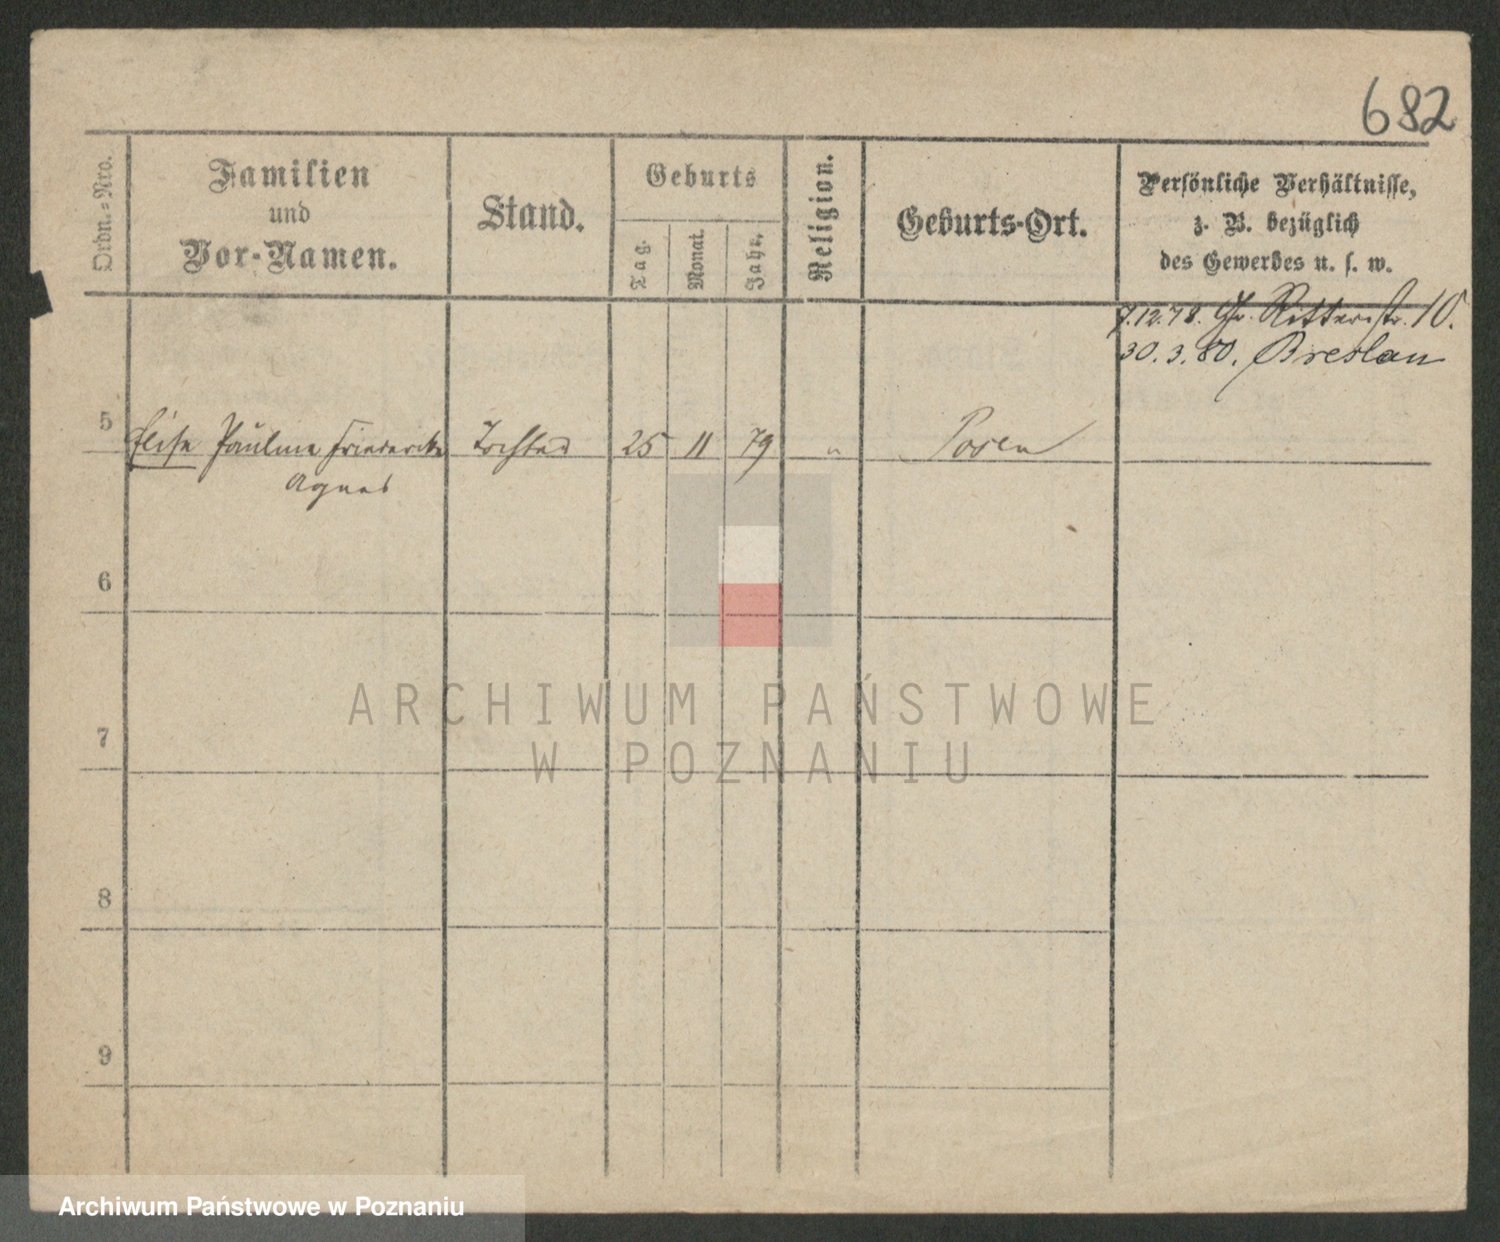 682
Ordn.=Nro.
Familien
und
Vor-Namen.
Stand.
Geburts
Tag.
Monat.
Jahr.
Religion.
Geburts-Ort.
Persönliche Verhältnisse,
z. B. bezüglich
des Gewerbes u. s. w.
7.12.78. Gr. Ritterstr. 10.
30.3.80. Breslau
5 Elise Pauline Friedericke Tochter 25 11 79 " Posen
Agnes
6
7
8
9
ARCHIWUM PAŃSTWOWE
W POZNANIU
Archiwum Państwowe w Poznaniu